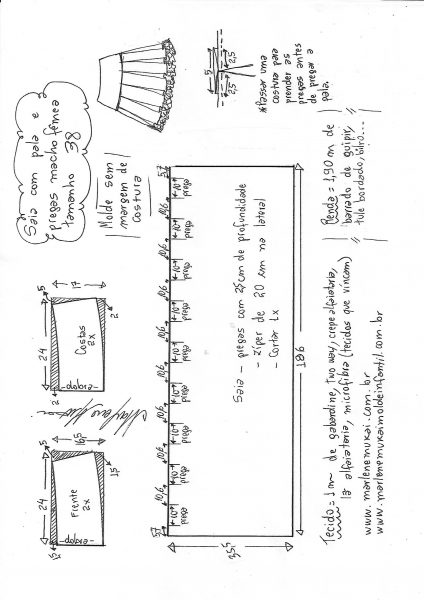 Saia com pala e
pregas macho fêmea
tamanho 38
Molde sem
margem de
costura
5
2,5
2,5
*Passar uma
costura para
prender as
pregas antes
de pregar a
pala.
5
17
24
Costas
2x
-dobra-
2
2
5
16,5
24
Frente
2x
-dobra-
1,5
1,5
5,7
10
prega
10,6
10
prega
10,6
10
prega
10,6
10
prega
10,6
10
prega
10,6
10
prega
10,6
10
prega
10,6
10
prega
10,6
10
prega
5,7
Saia - pregas com 2,5cm de profundidade
- zíper de 20 cm na lateral
- Cortar 1x
186
35,5
Renda = 1,90 m de
barrado de guipir,
tule bordado, bilro...
Tecido = 1 m de gabardine, two way, crepe alfaiataria,
lã alfaiataria, microfibra (tecidos que vincam)
www.marlenemukai.com.br
www.marlenemukaimoldeinfantil.com.br